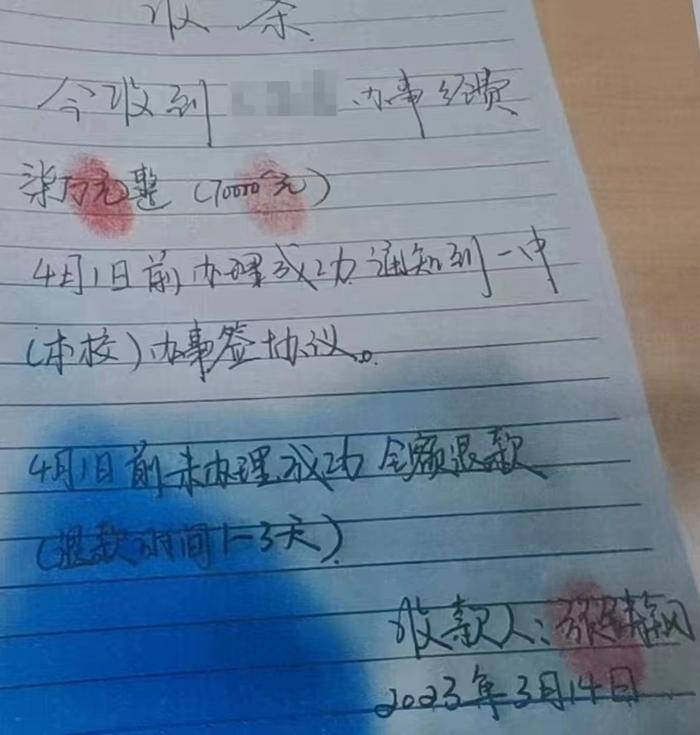 收条
今收到 办事经费
柒万元整（70000元）
4月1日前办理成功通知到一中
（本校）办事签协议。
4月1日前未办理成功全额退款
（退款时间1-3天）
收款人：张静
2023年3月14日